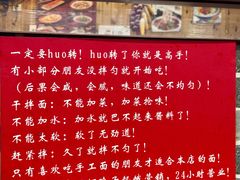 一定要huo转! huo转了你就是高手!
有小部分朋友没拌匀就开始吃!
(后果会咸,会腻,味道还会不均匀)!
干拌面:不能加菜,加菜抢味!
不能加水:加水就巴不起来酱料了!
不能太软:软了无劲道!
赶紧拌:久了就拌不匀了!
只有喜欢吃手工面的朋友才适合本店的面!
24小时营业!